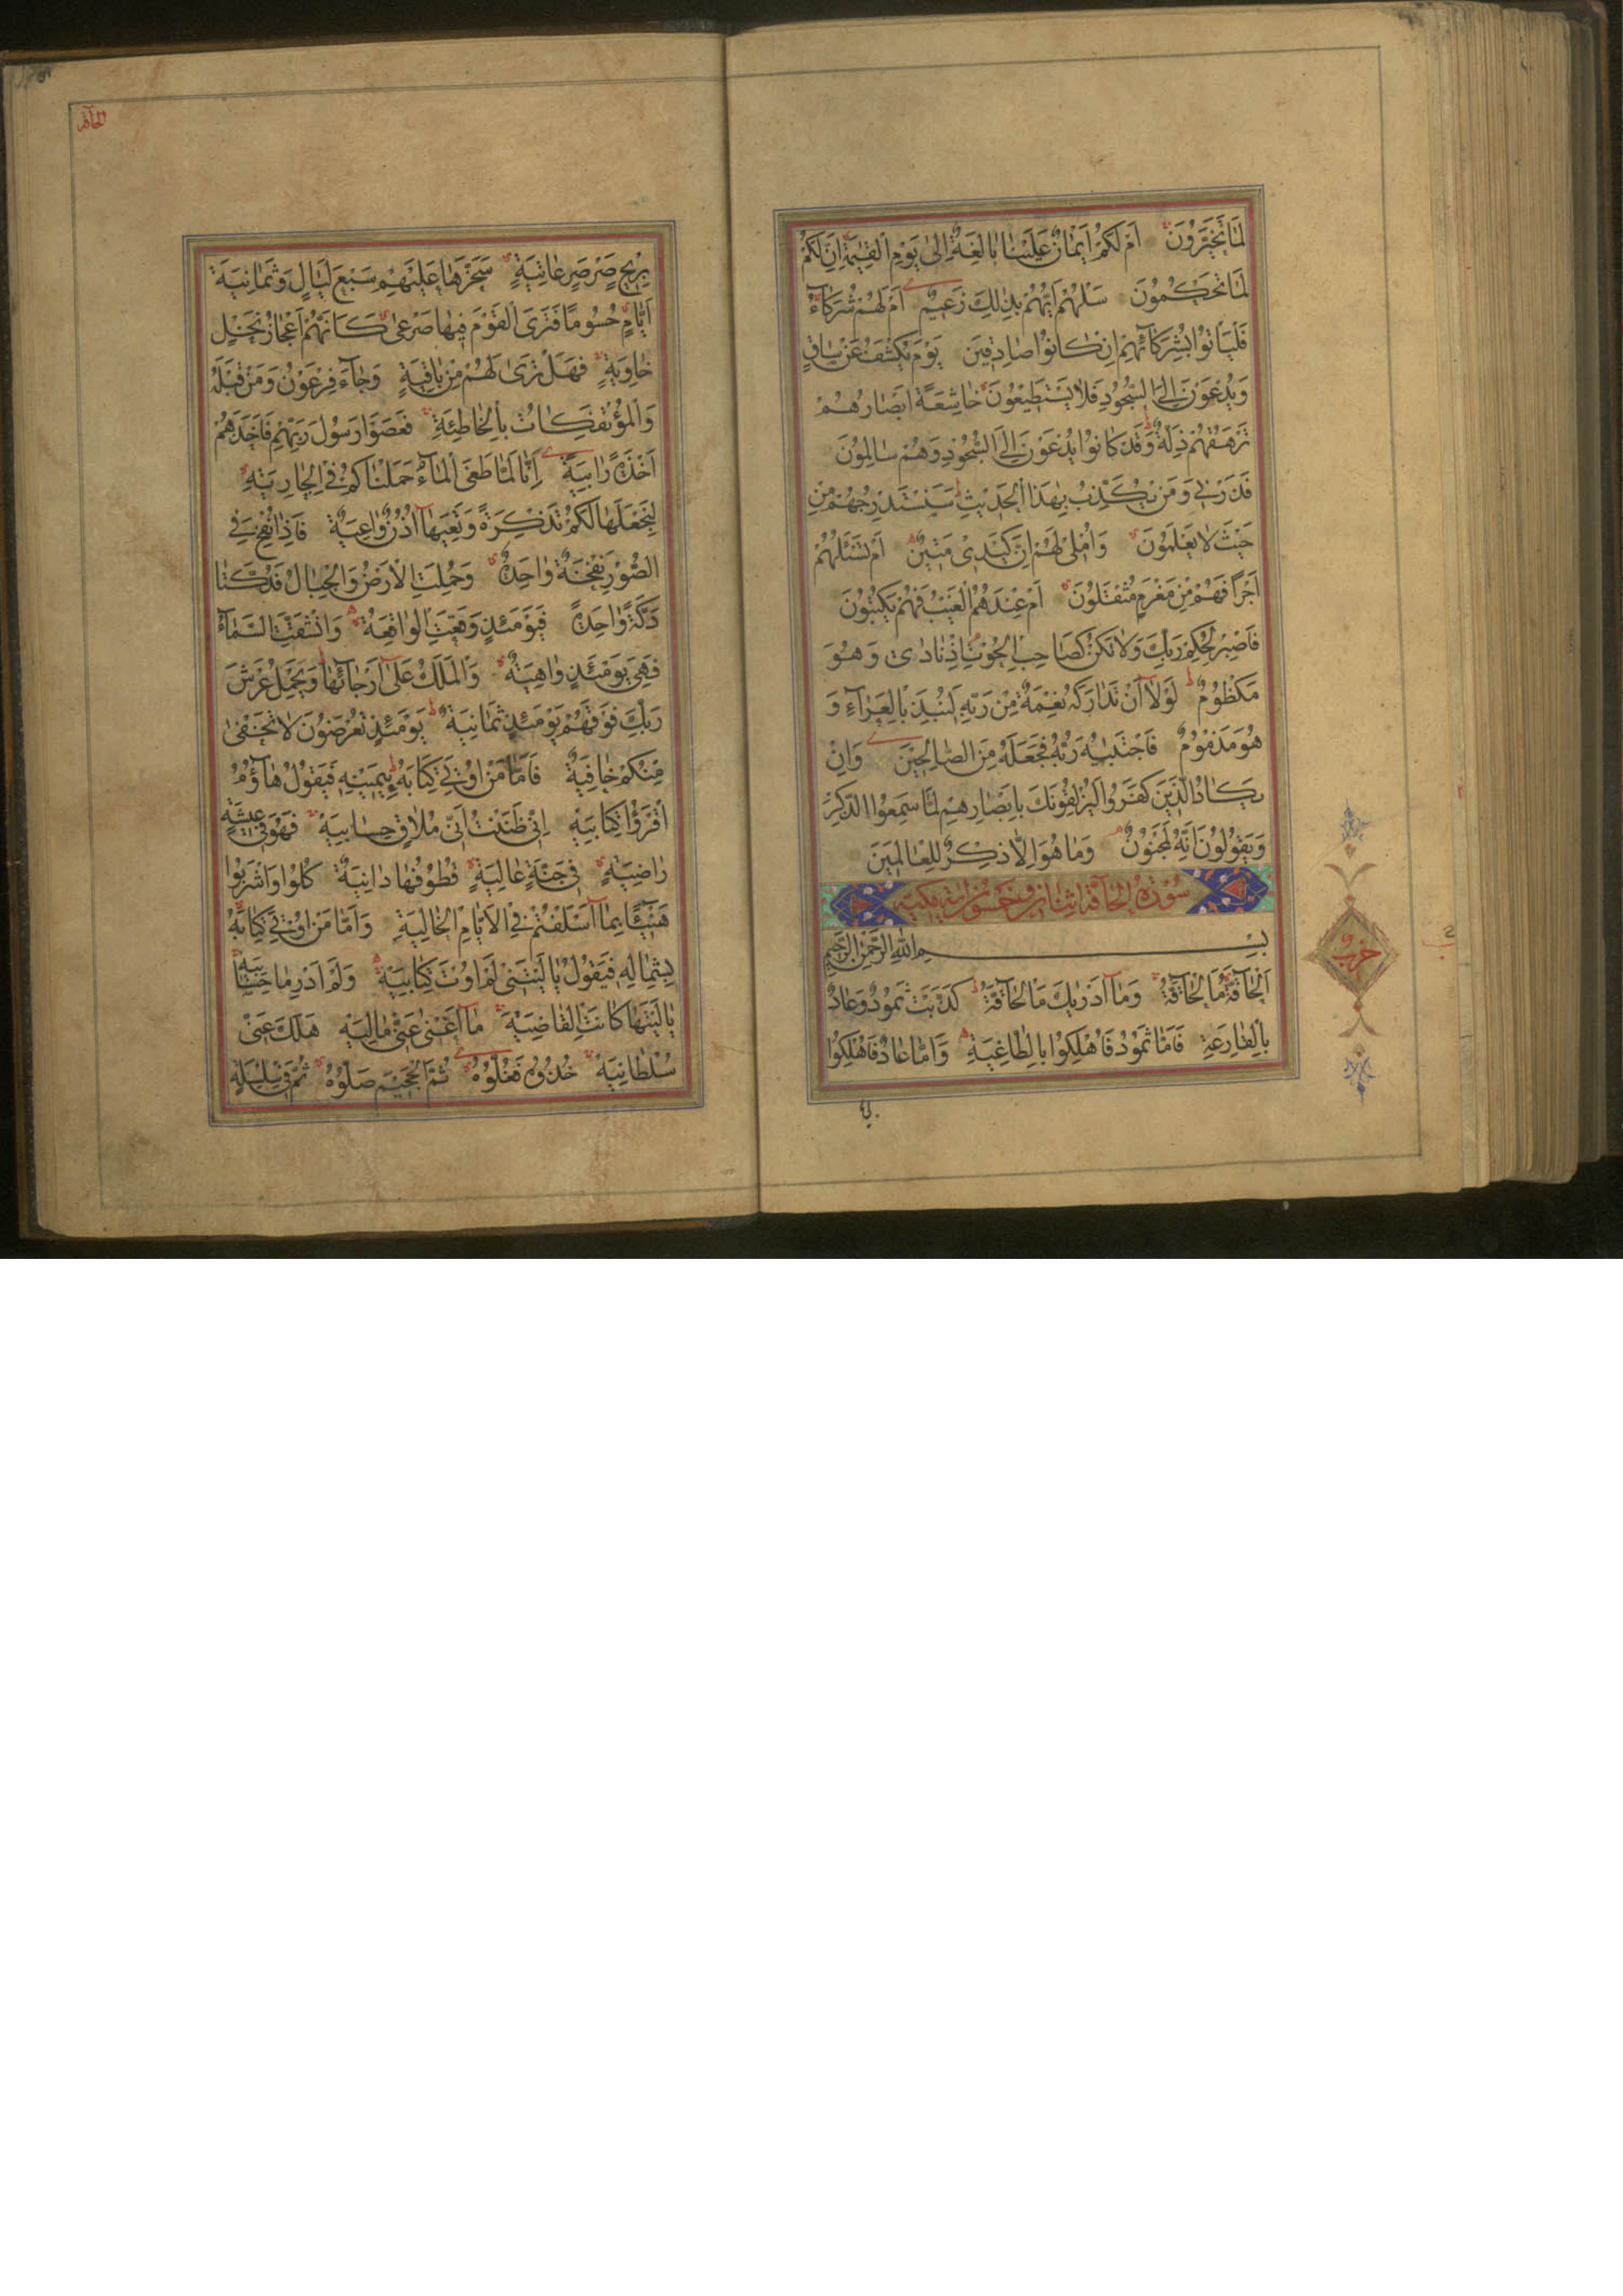 لَمَا تَخَيَّرُونَ اَمْ لَكُمْ اَيْمَانٌ عَلَيْنَا بَالِغَةٌ اِلٰى يَوْمِ الْقِيٰمَةِ اِنَّ لَكُمْ
لَمَا تَحْكُمُونَ سَلْهُمْ اَيُّهُمْ بِذٰلِكَ زَعِيمٌ اَمْ لَهُمْ شُرَكَآءُ
فَلْيَأْتُوا بِشُرَكَآئِهِمْ اِنْ كَانُوا صَادِقِينَ يَوْمَ يُكْشَفُ عَنْ سَاقٍ
وَيُدْعَوْنَ اِلَى السُّجُودِ فَلَا يَسْتَطِيعُونَ خَاشِعَةً اَبْصَارُهُمْ
تَرْهَقُهُمْ ذِلَّةٌ وَقَدْ كَانُوا يُدْعَوْنَ اِلَى السُّجُودِ وَهُمْ سَالِمُونَ
فَذَرْنِي وَمَنْ يُكَذِّبُ بِهٰذَا الْحَدِيثِ سَنَسْتَدْرِجُهُمْ مِنْ
حَيْثُ لَا يَعْلَمُونَ وَاُمْلِي لَهُمْ اِنَّ كَيْدِي مَتِينٌ اَمْ تَسْئَلُهُمْ
اَجْرًا فَهُمْ مِنْ مَغْرَمٍ مُثْقَلُونَ اَمْ عِنْدَهُمُ الْغَيْبُ فَهُمْ يَكْتُبُونَ
فَاصْبِرْ لِحُكْمِ رَبِّكَ وَلَا تَكُنْ كَصَاحِبِ الْحُوتِ اِذْ نَادٰى وَهُوَ
مَكْظُومٌ لَوْلَا اَنْ تَدَارَكَهُ نِعْمَةٌ مِنْ رَبِّهِ لَنُبِذَ بِالْعَرَآءِ وَ
هُوَ مَذْمُومٌ فَاجْتَبٰيهُ رَبُّهُ فَجَعَلَهُ مِنَ الصَّالِحِينَ وَاِنْ
يَكَادُ الَّذِينَ كَفَرُوا لَيُزْلِقُونَكَ بِاَبْصَارِهِمْ لَمَّا سَمِعُوا الذِّكْرَ
وَيَقُولُونَ اِنَّهُ لَمَجْنُونٌ وَمَا هُوَ اِلَّا ذِكْرٌ لِلْعَالَمِينَ
سُورَةُ الْحَآقَّةِ اثنان وخمسون اية مكية
بِسْمِ اللّٰهِ الرَّحْمٰنِ الرَّحِيمِ
اَلْحَآقَّةُ مَا الْحَآقَّةُ وَمَآ اَدْرٰيكَ مَا الْحَآقَّةُ كَذَّبَتْ ثَمُودُ وَعَادٌ
بِالْقَارِعَةِ فَاَمَّا ثَمُودُ فَاُهْلِكُوا بِالطَّاغِيَةِ وَاَمَّا عَادٌ فَاُهْلِكُوا
حزب
الحآقة
بِرِيحٍ صَرْصَرٍ عَاتِيَةٍ سَخَّرَهَا عَلَيْهِمْ سَبْعَ لَيَالٍ وَثَمَانِيَةَ
اَيَّامٍ حُسُومًا فَتَرَى الْقَوْمَ فِيهَا صَرْعٰى كَاَنَّهُمْ اَعْجَازُ نَخْلٍ
خَاوِيَةٍ فَهَلْ تَرٰى لَهُمْ مِنْ بَاقِيَةٍ وَجَآءَ فِرْعَوْنُ وَمَنْ قَبْلَهُ
وَالْمُؤْتَفِكَاتُ بِالْخَاطِئَةِ فَعَصَوْا رَسُولَ رَبِّهِمْ فَاَخَذَهُمْ
اَخْذَةً رَابِيَةً اِنَّا لَمَّا طَغَى الْمَآءُ حَمَلْنَاكُمْ فِي الْجَارِيَةِ
لِنَجْعَلَهَا لَكُمْ تَذْكِرَةً وَتَعِيَهَآ اُذُنٌ وَاعِيَةٌ فَاِذَا نُفِخَ فِي
الصُّورِ نَفْخَةٌ وَاحِدَةٌ وَحُمِلَتِ الْاَرْضُ وَالْجِبَالُ فَدُكَّتَا
دَكَّةً وَاحِدَةً فَيَوْمَئِذٍ وَقَعَتِ الْوَاقِعَةُ وَانْشَقَّتِ السَّمَآءُ
فَهِيَ يَوْمَئِذٍ وَاهِيَةٌ وَالْمَلَكُ عَلٰٓى اَرْجَآئِهَا وَيَحْمِلُ عَرْشَ
رَبِّكَ فَوْقَهُمْ يَوْمَئِذٍ ثَمَانِيَةٌ يَوْمَئِذٍ تُعْرَضُونَ لَا تَخْفٰى
مِنْكُمْ خَافِيَةٌ فَاَمَّا مَنْ اُوتِيَ كِتَابَهُ بِيَمِينِهِ فَيَقُولُ هَآؤُمُ
اقْرَؤُا كِتَابِيَهْ اِنِّي ظَنَنْتُ اَنِّي مُلَاقٍ حِسَابِيَهْ فَهُوَ فِي عِيشَةٍ
رَاضِيَةٍ فِي جَنَّةٍ عَالِيَةٍ قُطُوفُهَا دَانِيَةٌ كُلُوا وَاشْرَبُوا
هَنِيئًا بِمَآ اَسْلَفْتُمْ فِي الْاَيَّامِ الْخَالِيَةِ وَاَمَّا مَنْ اُوتِيَ كِتَابَهُ
بِشِمَالِهِ فَيَقُولُ يَا لَيْتَنِي لَمْ اُوتَ كِتَابِيَهْ وَلَمْ اَدْرِ مَا حِسَابِيَهْ
يَا لَيْتَهَا كَانَتِ الْقَاضِيَةَ مَآ اَغْنٰى عَنِّي مَالِيَهْ هَلَكَ عَنِّي
سُلْطَانِيَهْ خُذُوهُ فَغُلُّوهُ ثُمَّ الْجَحِيمَ صَلُّوهُ ثُمَّ فِي سِلْسِلَةٍ